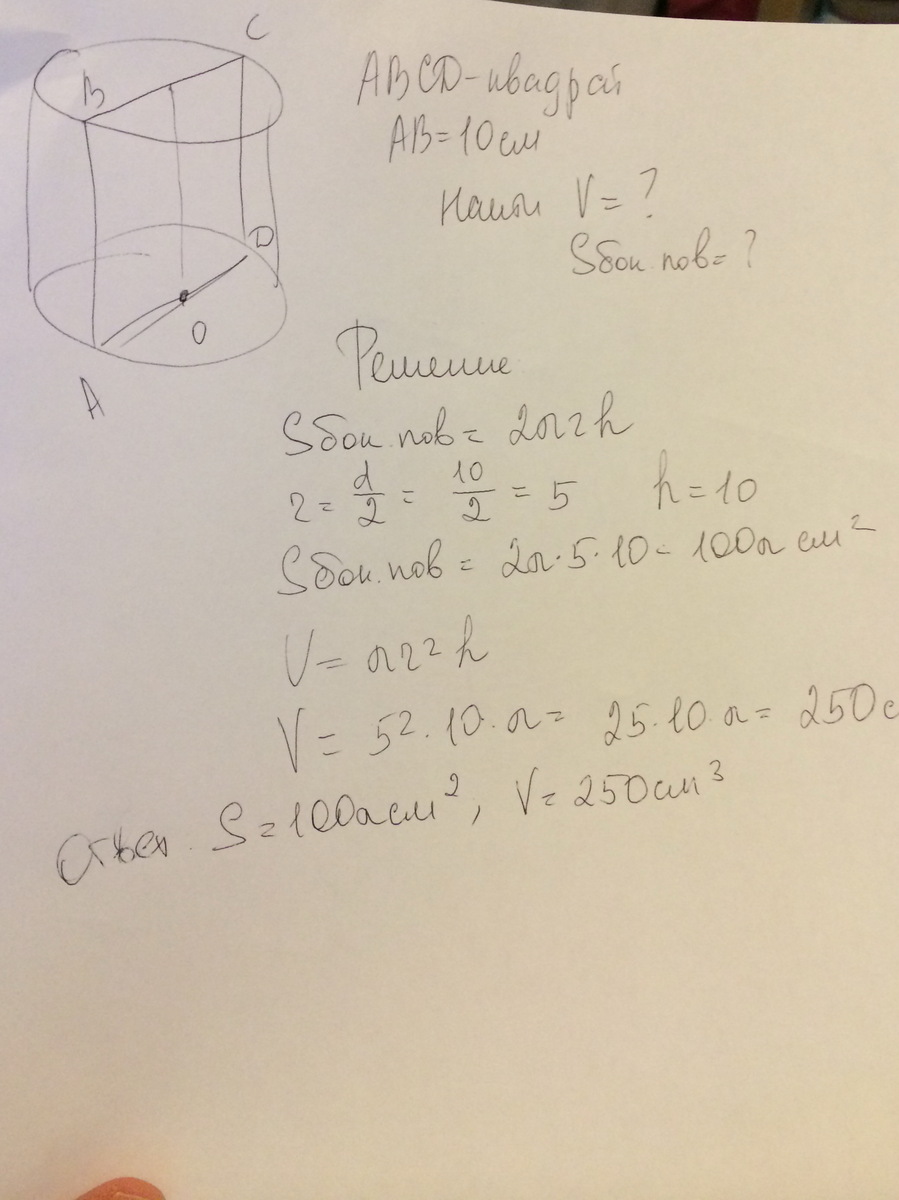 C
B
D
O
A
ABCD - квадрат
AB = 10 см
Найти V = ?
Sбок. пов = ?
Решение
Sбок. пов = 2πrh
r = d/2 = 10/2 = 5 h = 10
Sбок. пов = 2π·5·10 = 100π см²
V = πr²h
V = 5²·10·π = 25·10·π = 250 с
Ответ. S = 100π см², V = 250 см³